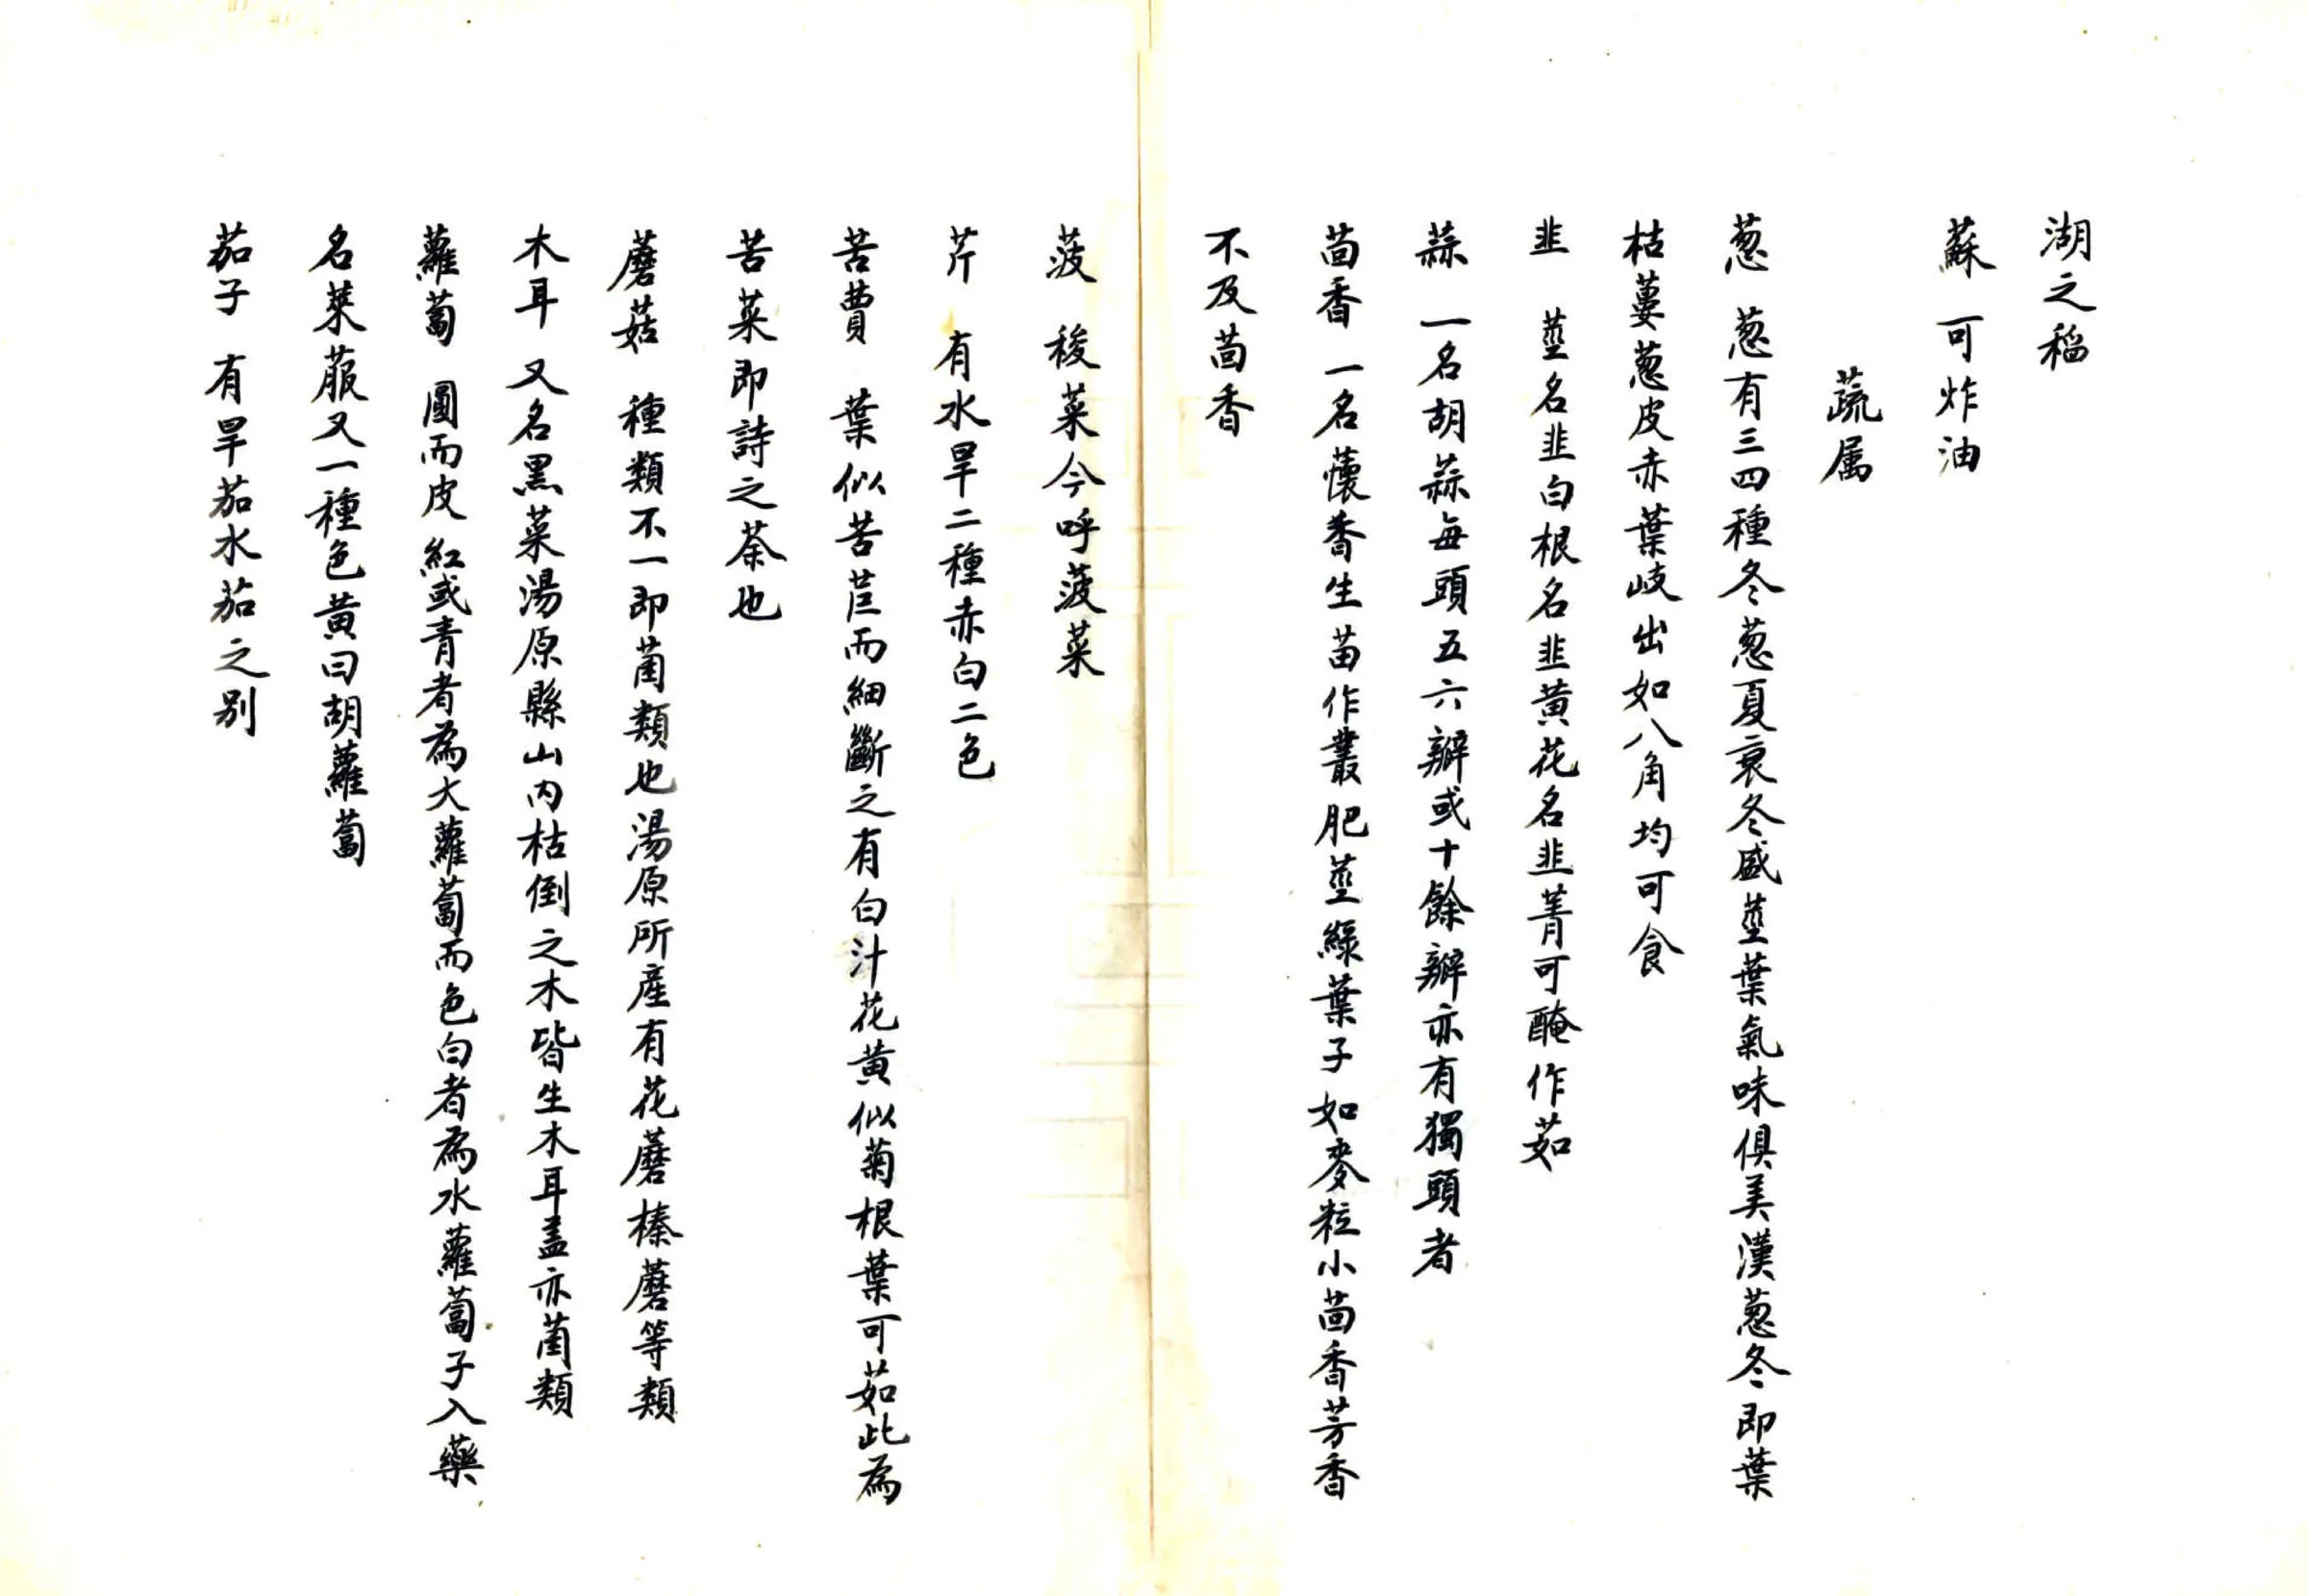 湖之稻
蘇 可炸油
蔬属
葱 葱有三四種冬葱夏衰冬盛莖葉氣味俱美漢葱冬即葉
枯蔞葱皮赤葉岐出如八角均可食
韭 莖名韭白根名韭黄花名韭菁可醃作茹
蒜 一名胡蒜每頭五六瓣或十餘瓣亦有獨頭者
茴香 一名懷香生苗作叢肥莖綠葉子如麥粒小茴香芳香
不及茴香
菠 稜菜今呼菠菜
芹 有水旱二種赤白二色
苦蕒 葉似苦苣而細斷之有白汁花黄似菊根葉可茹此為
苦菜即詩之荼也
蘑菇 種類不一即菌類也湯原所產有花蘑榛蘑等類
木耳 又名黑菜湯原縣山内枯倒之木皆生木耳盖亦菌類
蘿蔔 圓而皮紅或青者為大蘿蔔而色白者為水蘿蔔子入藥
名萊菔又一種色黄曰胡蘿蔔
茄子 有旱茄水茄之别